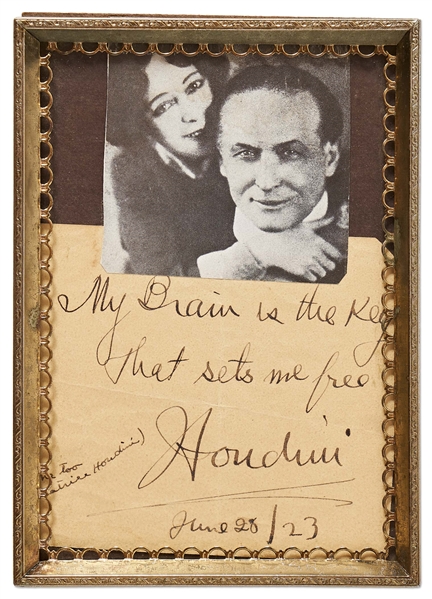 My Brain is the Key
That sets me free
too
Houdini)
Houdini
June 28/23